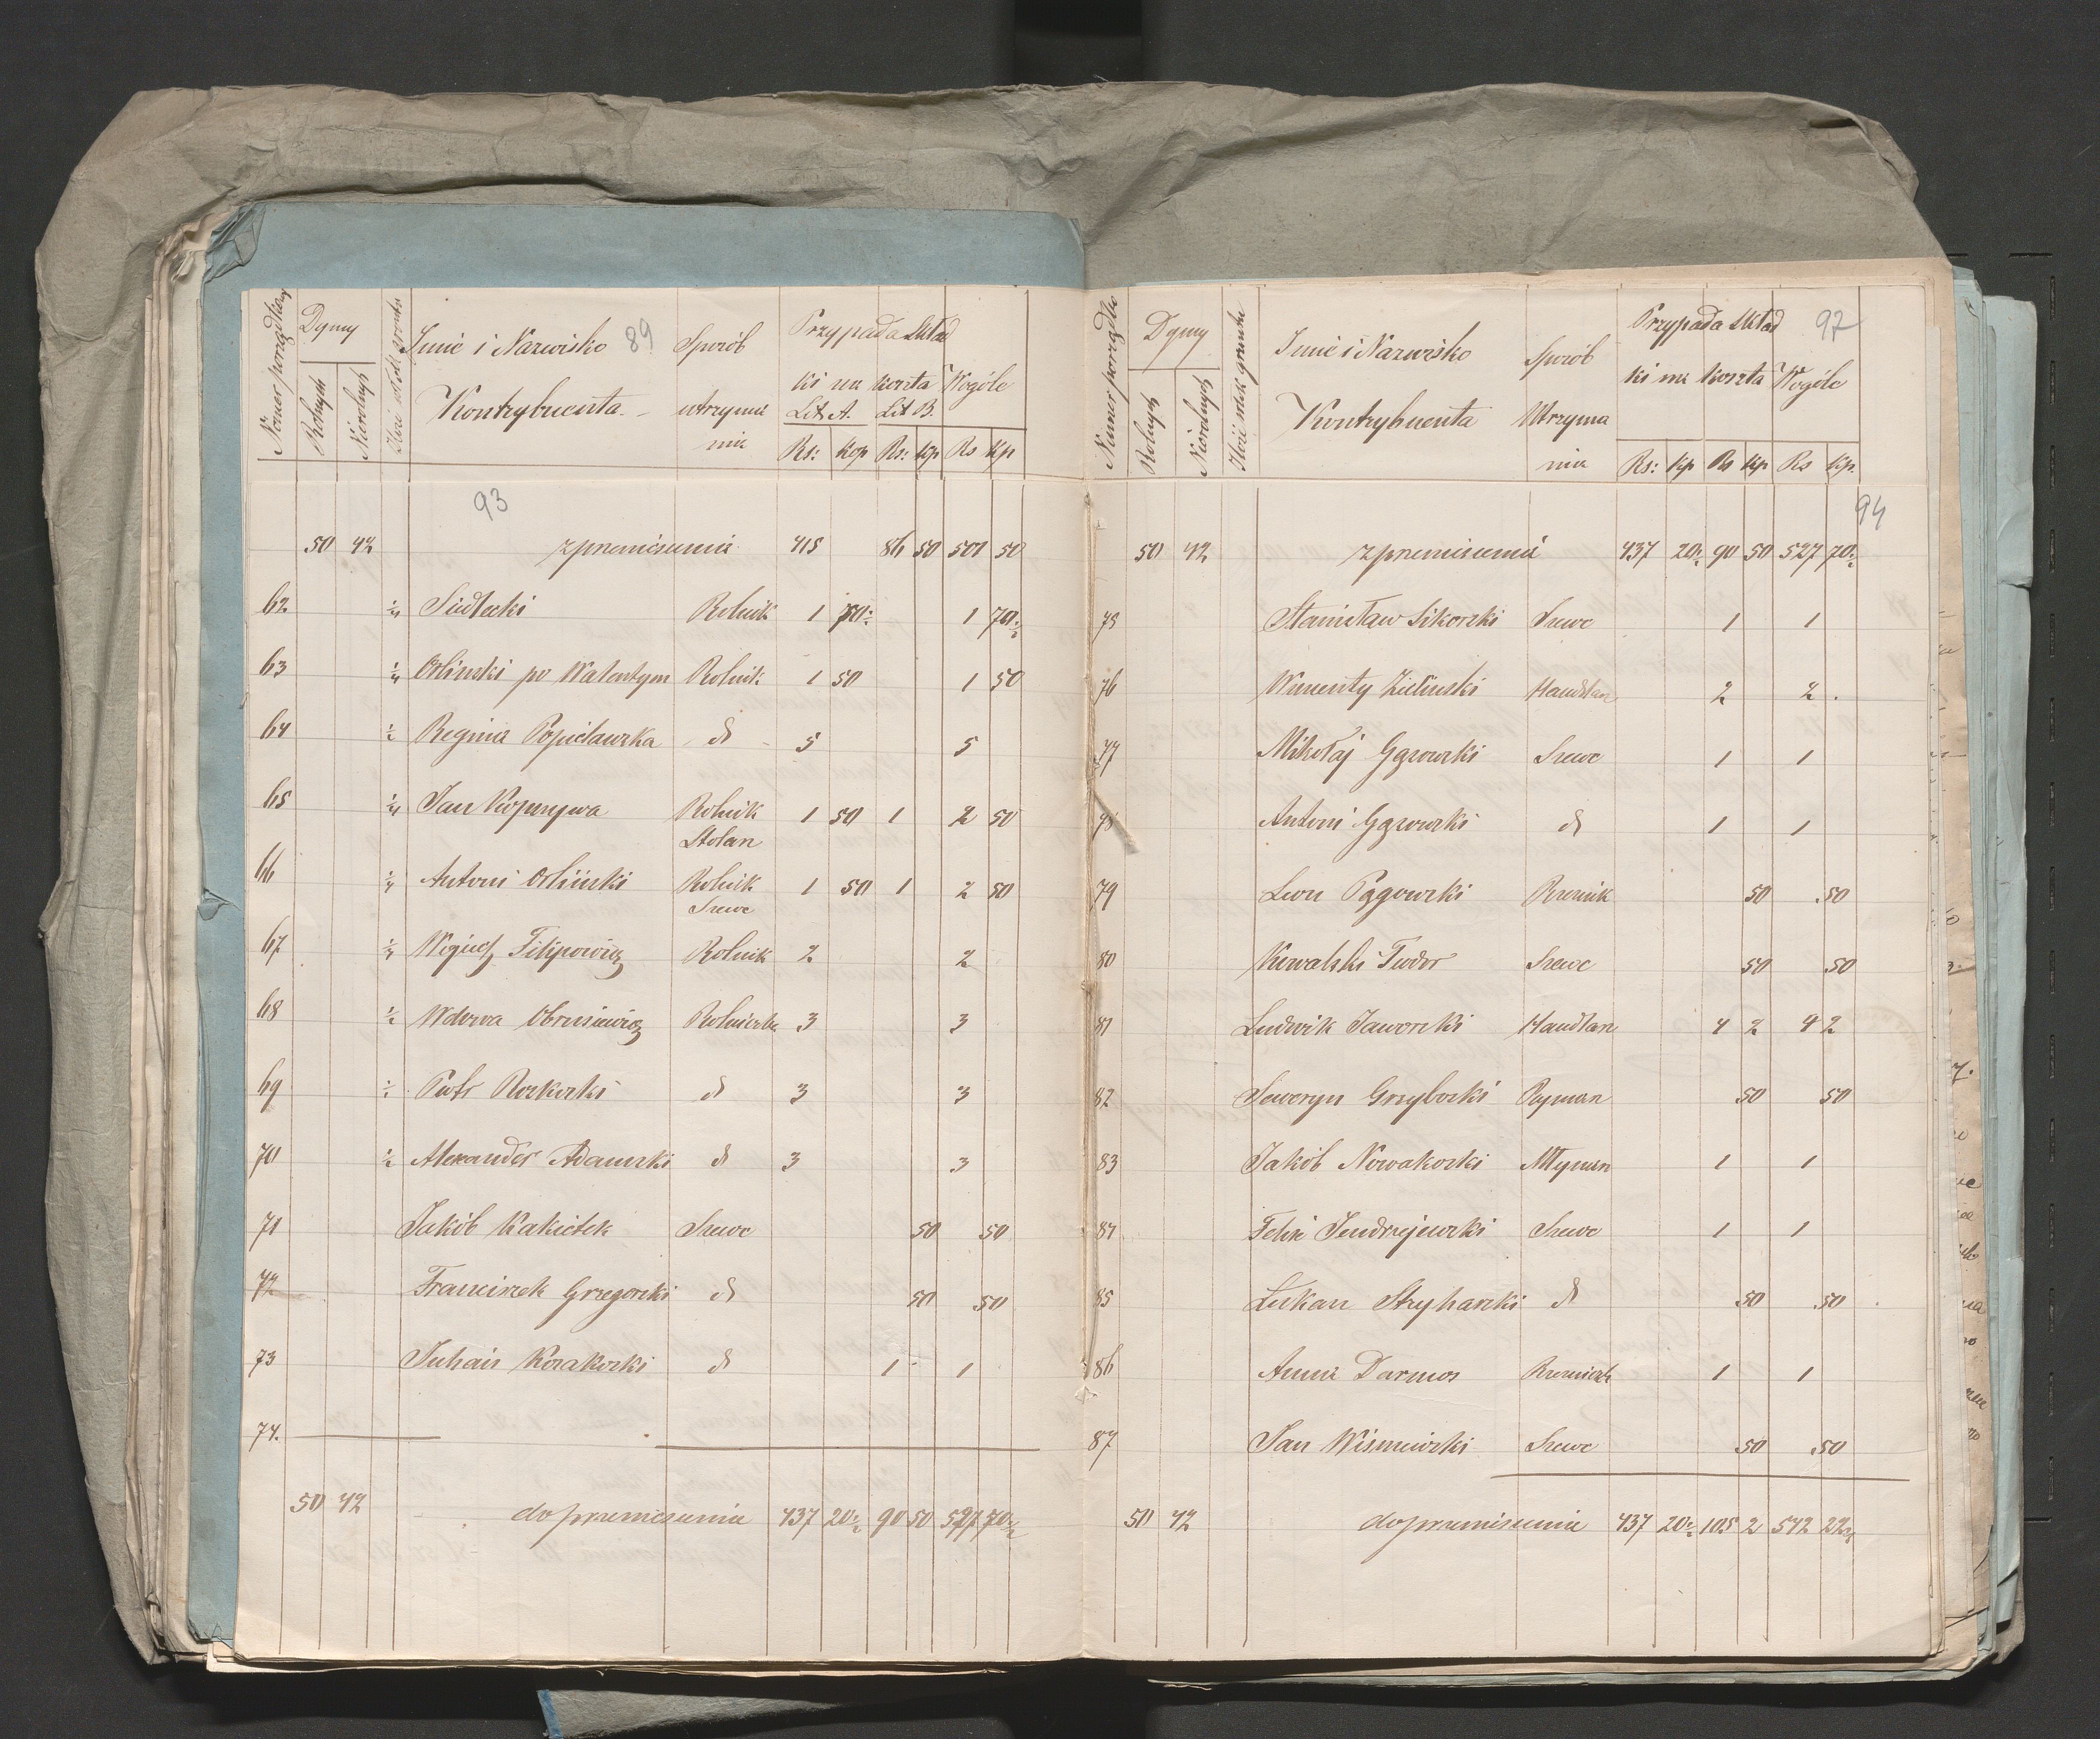 Numer porządkowy Dymy Rolnych Nierolnych Ilość włók gruntu Imie i Nazwisko Kontrybuenta Sposób utrzyma nia Przypada Skład ki na koszta Lit A. Lit B. Wogóle
89
Rs: kop Rs: kp Rs kp
93
50 42 z przeniesienia 415 86 50 501 50
62 Siedlecki Rolnik 1 70½ 1 70½
63 ¼ Orlinski po Walentym Rolnik 1 50 1 50
64 ½ Regina Popielawska d 5 5
65 ¼ Jan Rolnik 1 50 1 2 50
Stolarz
66 ¼ Antoni Orlinski Rolnik 1 50 1 2 50
Szewc
67 Filipowicz Rolnik 2 2
68 ½ Wdowa Obrusiewicz Rolniczka 3 3
69 Piotr Roskoski d 3 3
70 ½ Alexander Adamski d 3 3
71 Jakób Kakietek Szewc 50 50
72 Franciszek Grzegorski d 50 50
73 Korakoski d 1 1
74.
50 42 do przeniesienia 437 20½ 90 50 527 70½
Numer porządko Dymy Rolnych Nierolnych Ilość włók gruntu Imie i Nazwisko Kontrybuenta Sposób Utrzyma nia Przypada Skład ki na koszta Wogóle
97
Rs: kp Rs kp Rs kp.
94
50 42 z przeniesienia 437 20½ 90 50 527 70½
75 Stanisław Sikorski Szewc 1 1
76 Wincenty Zielinski Handlarz 2 2.
77 Mikołaj Gąsowski Szewc 1 1
78 Antoni Gąsowski d 1 1
79 Leon Pągowski Rzeznik 50 50
80 Kowalski Teodor Szewc 50 50
81 Ludwik Jaworski Handlarz 4 2 4 2
82 Seweryn Grzyboski Rymarz 50 50
83 Jakób Nowakoski Młynarz 1 1
84 Felix Jendrzejewski Szewc 1 1
85 Łukasz Stryharski d 50 50
86 Anna Darmos 1 1
87 Jan Wisniewski Szewc 50 50
50 42 do przeniesienia 437 20½ 105 2 542 22½